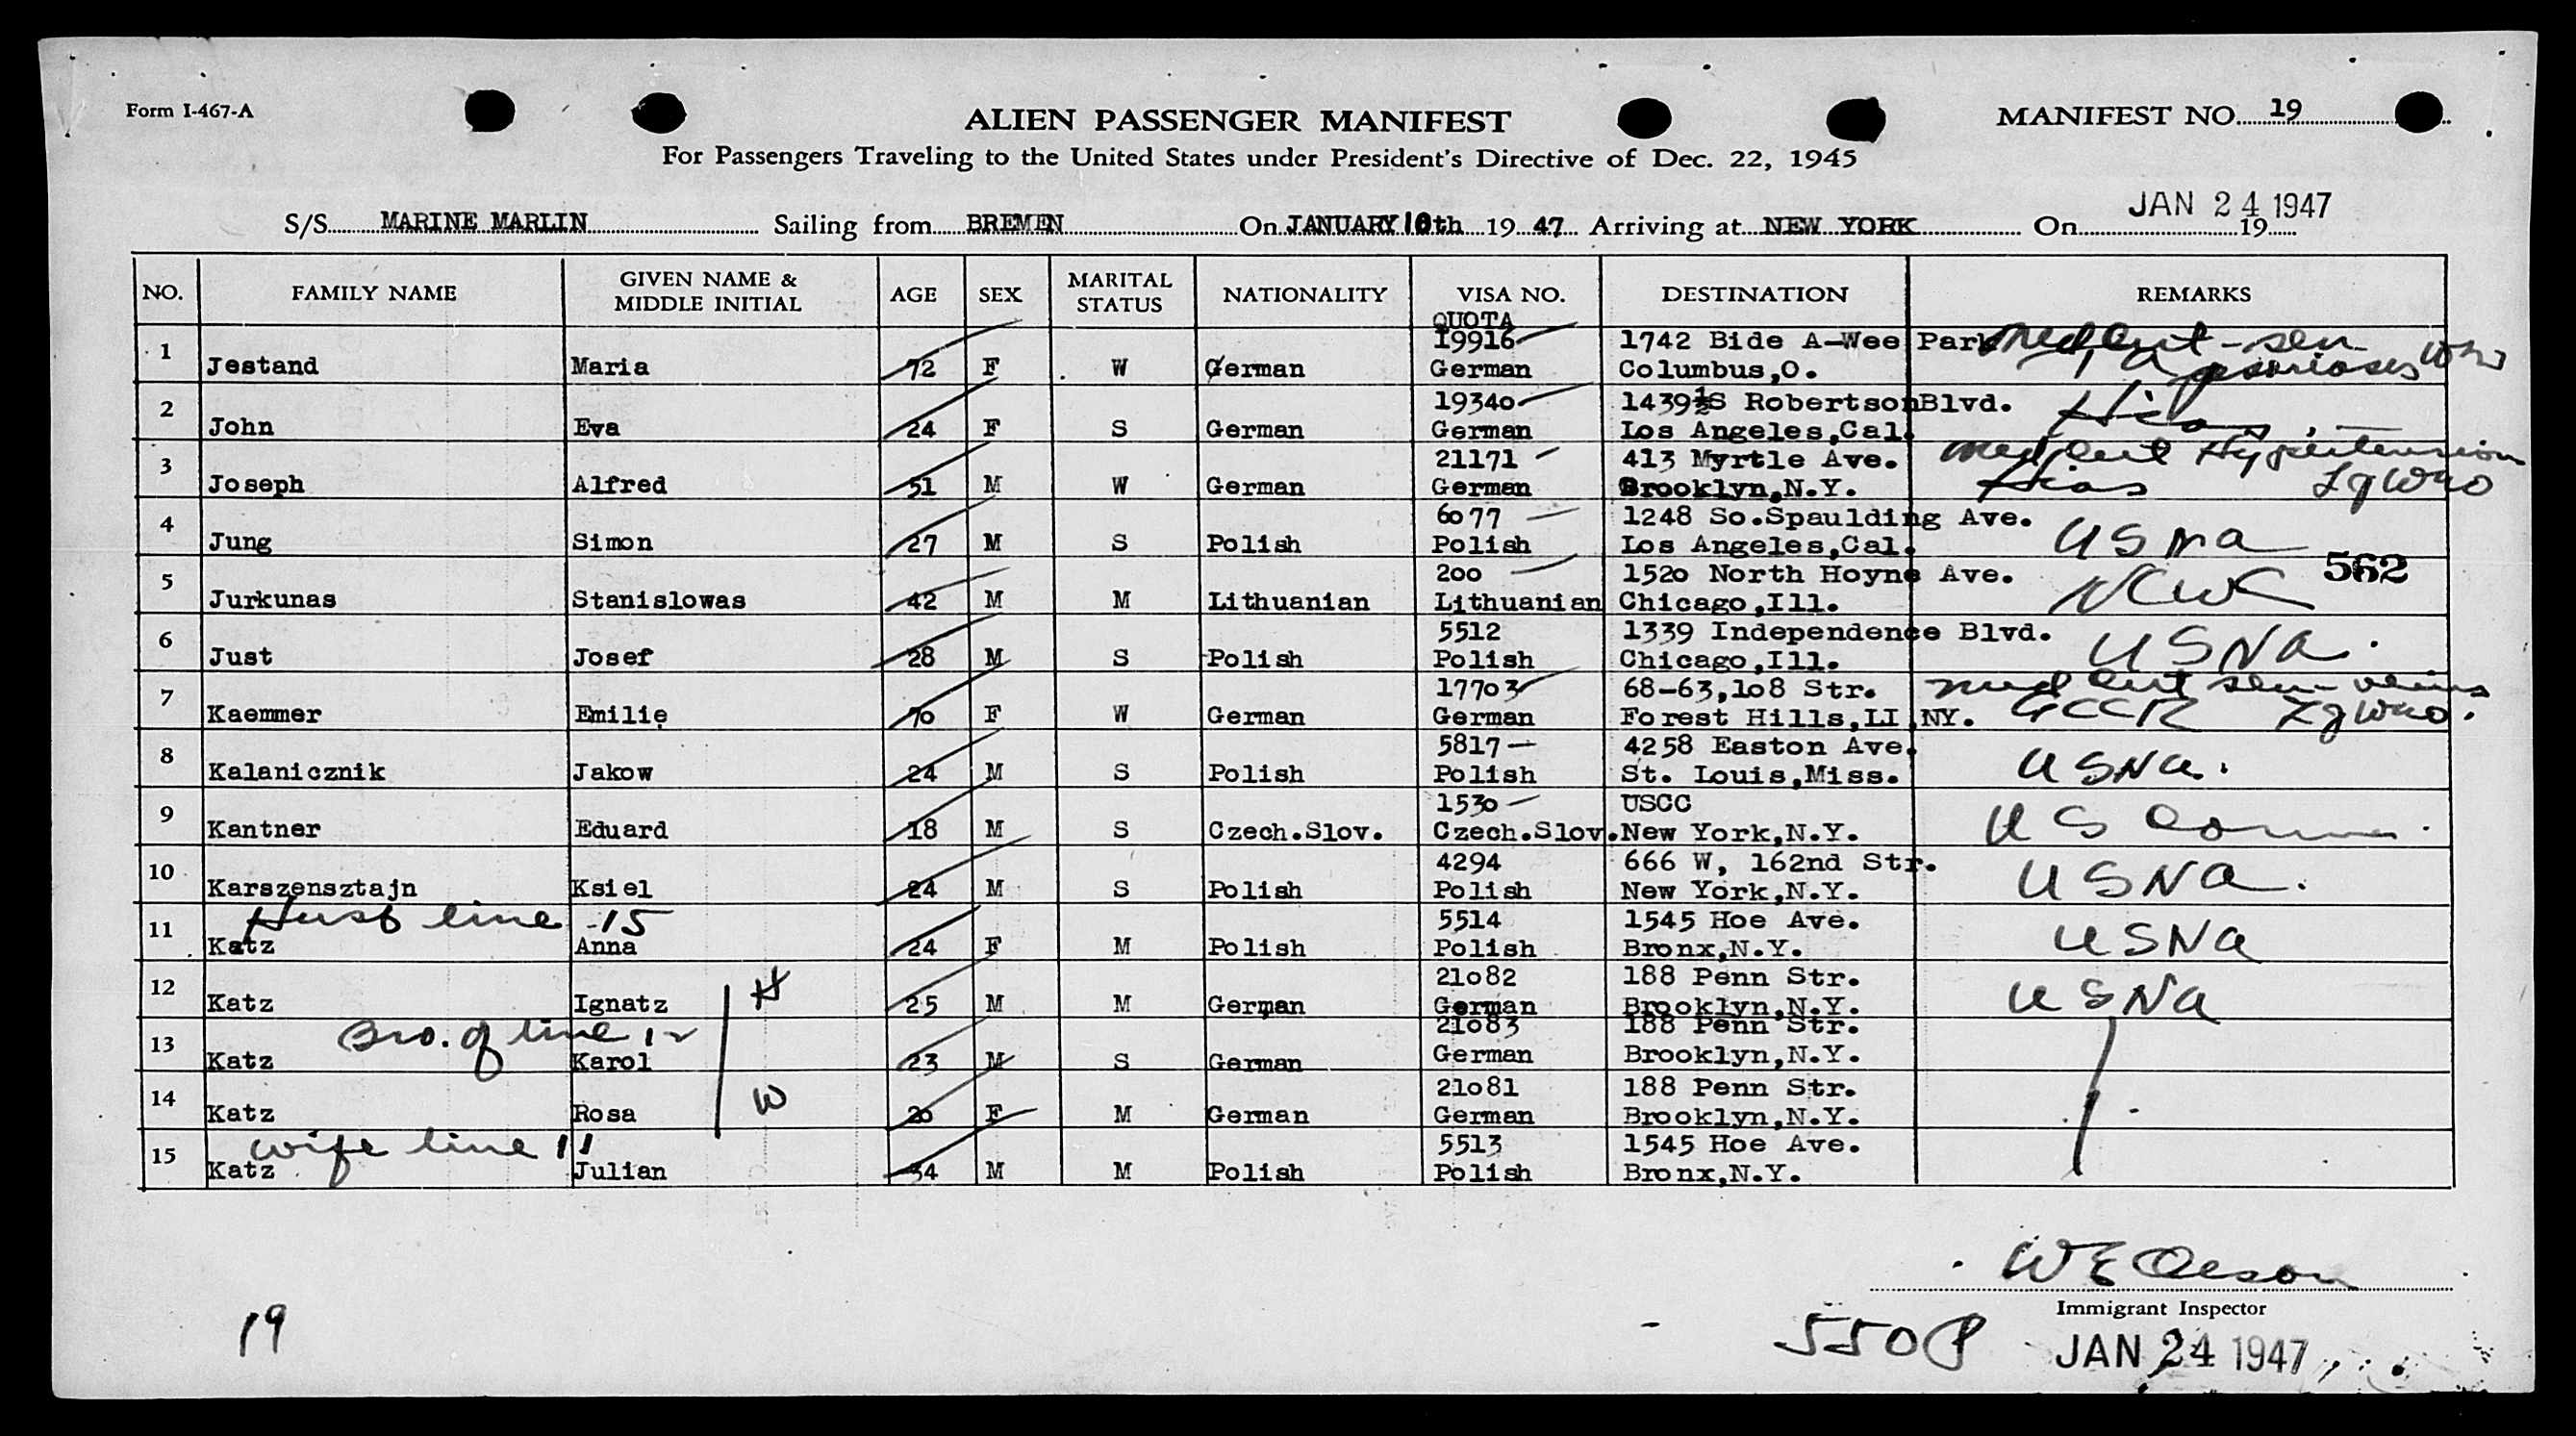 Form I-467-A
ALIEN PASSENGER MANIFEST
MANIFEST NO. 19
For Passengers Traveling to the United States under President's Directive of Dec. 22, 1945
JAN 24 1947
S/S MARINE MARLIN Sailing from BREMEN On JANUARY 10th 19 47 Arriving at NEW YORK On 19
NO. FAMILY NAME GIVEN NAME & MIDDLE INITIAL AGE SEX MARITAL STATUS NATIONALITY VISA NO. DESTINATION REMARKS
QUOTA
19916 1742 Bide A-Wee Park
1 Jestand Maria 72 F W German German Columbus,O.
19340 1439½S RobertsonBlvd. Hias
2 John Eva 24 F S German German Los Angeles,Cal.
21171 413 Myrtle Ave. med cert Hypertension
3 Joseph Alfred 51 M W German German Brooklyn,N.Y. Hias
6077 1248 So.Spaulding Ave.
4 Jung Simon 27 M S Polish Polish Los Angeles,Cal. USNA
562
200 1520 North Hoyne Ave.
5 Jurkunas Stanislowas 42 M M Lithuanian Lithuanian Chicago,Ill. NCWC
5512 1339 Independence Blvd.
6 Just Josef 28 M S Polish Polish Chicago,Ill. USNA.
17703 68-63,108 Str. med cert sen veins
7 Kaemmer Emilie 70 F W German German Forest Hills,LI,NY.
5817 4258 Easton Ave.
8 Kalanicznik Jakow 24 M S Polish Polish St. Louis,Miss. USNA.
1530 USCC
9 Kantner Eduard 18 M S Czech.Slov. Czech.Slov. New York,N.Y. US Comm.
4294 666 W, 162nd Str.
10 Karszensztajn Ksiel 24 M S Polish Polish New York,N.Y. USNA.
Husb line 15
5514 1545 Hoe Ave.
11 Katz Anna 24 F M Polish Polish Bronx,N.Y. USNA
21082 188 Penn Str.
12 Katz Ignatz H 25 M M German German Brooklyn,N.Y. USNA
Bro. of line 12
21083 188 Penn Str.
13 Katz Karol 23 M S German German Brooklyn,N.Y.
21081 188 Penn Str.
14 Katz Rosa W 20 F M German German Brooklyn,N.Y.
wife line 11
5513 1545 Hoe Ave.
15 Katz Julian 34 M M Polish Polish Bronx,N.Y.
Immigrant Inspector
19
550P
JAN 24 1947